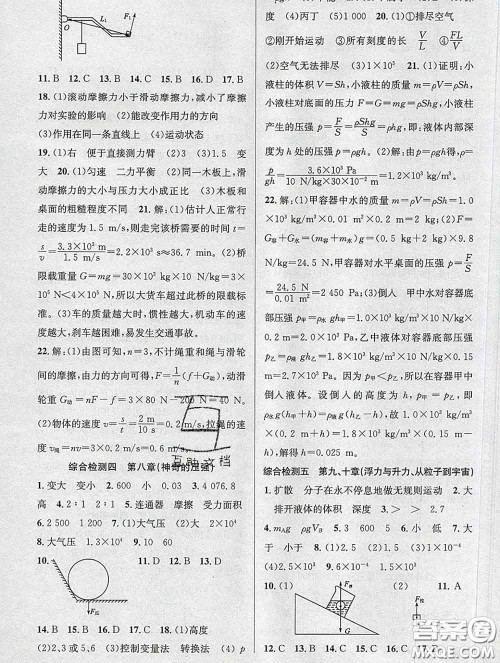 O L₁ F₁
11. B 12. C 13. B 14. C 15. B 16. D 17. B
18. (1)滚动摩擦力小于滑动摩擦力,减小了摩擦
力对实验的影响 (2)能改变作用力的方向
(3)作用在同一条直线上 (4)运动状态
19. (1)右 便于直接测力臂 (2)3 (3)1.5 变
大 20. (1)匀速 二力平衡 (2)同一木板上,滑
动摩擦力的大小与压力大小成正比 (3)木板和
桌面的粗糙程度不同 21. 解:(1)估计人正常行
走的速度为 1.5 m/s,则走完该桥需要的时间 t=
s/v = 3.3×10³ m / 1.5 m/s = 2.2×10³ s≈36.7 min。 (2)桥
限载重量 G=mg=30×10³ kg×10 N/kg=3×
10⁵ N<4×10⁵ N,所以大货车超过此桥的限载标
准。(3)车的质量越大时,惯性越大,机动车的速
度越大,刹车越困难,易发生交通事故。
22. 解:(1)由图可知,n=3,不计绳重和绳与滑轮
间的摩擦,由力的方向可得,F=1/n(f+G动),滑
动轮重 G动=nF-f=3×80 N-200 N=40 N。
(2)物体的速度 v=s/t=2 m/10 s=0.2 m/s,拉绳的速
度 v绳=nv=3×0.2 m/s=0.6 m/s
综合检测四 第八章(神奇的压强)
1. 变大 变小 2. 300 600 3. 0.03 4 076.8
高 4. 2∶1 2∶1 5. 连通器 摩擦 受力面积
6. 2 500 1 200 7. (1)大气压 (2)大气压
8. 大气压 1.3×10⁴ 9. (1)不变 (2)变大
10. F压 11. D 12. D 13. D
14. B 15. B 16. C 17. C 18. (1)高度
(2)2,3或5,6 (3)控制变量法 转换法 (4)p
度 (4)丙丁 (5)1 000 20. (1)①排尽空气
②刚开始运动 ③所有刻度的长 V/L ④ FL/V
(2)空气无法排尽 (3)1×10⁵ 21. (1)证明:小
液柱的体积 V=Sh,小液柱的质量 m=ρV=ρSh,
小液柱的压力 F=G=mg=ρShg,小液柱
产生的压强 p=F/S=ρShg/S=ρgh,即液体内部深
度为 h 处的压强 p=ρgh。(2)解:由 p=ρgh 得,ρ
=p/gh=3.6×10³ Pa / 10 N/kg×30×10⁻² m=1.2×10³ kg/m³。
22. 解:(1)甲容器中水的质量 m=ρV=ρSh=1.0×
10³ kg/m³×0.01 m²×0.2 m=2 kg; (2)F=
G总=(m容+m水)g=(0.5 kg+2 kg)×9.8
N/kg=24.5 N,甲容器对水平桌面的压强 p=F/S
=24.5 N/0.01 m²=2 450 Pa;(3)倒人 甲中水对容器底
部压强 p甲=ρ水gh甲=1.0×10³ kg/m³×10 N/kg
×0.2 m=2.0×10³ Pa,乙中液体对容器底部压强
p乙=ρ液gh乙=1.8×10³ kg/m³×10 N/kg×0.15
m=2.7×10³ Pa,因 p甲<p乙,所以在容器甲中
倒人液体。设倒人的高度为 h,则 1.0×10³
kg/m³×10 N/kg×0.2 m+1.8×10³
kg/m³×10 N/kg×h=1.8×10³ kg/m³×10 N/kg×
(0.15 m-h),得 h=0.025 m。
综合检测五 第九、十章(浮力与升力,从粒子到宇宙)
1. 扩散 分子在永不停息地做无规则运动 2. 大
排开液体的体积 深度 3. > > 2.7×10³
4. mAg ρgVB 5. 3 600 5 6. 小 低 7. 大于
大于 小于 8. (1)2.5 (2)1.5×10⁻⁴
(3)2.5×10³ 9. (1)2.5 (2)1.56×10⁻⁴
10. (1) F浮 G (2) F拉 11. A
12. D 13. B 14. C 15. B 16. C 17. D
互助文档
答案圈
MXQE.COM